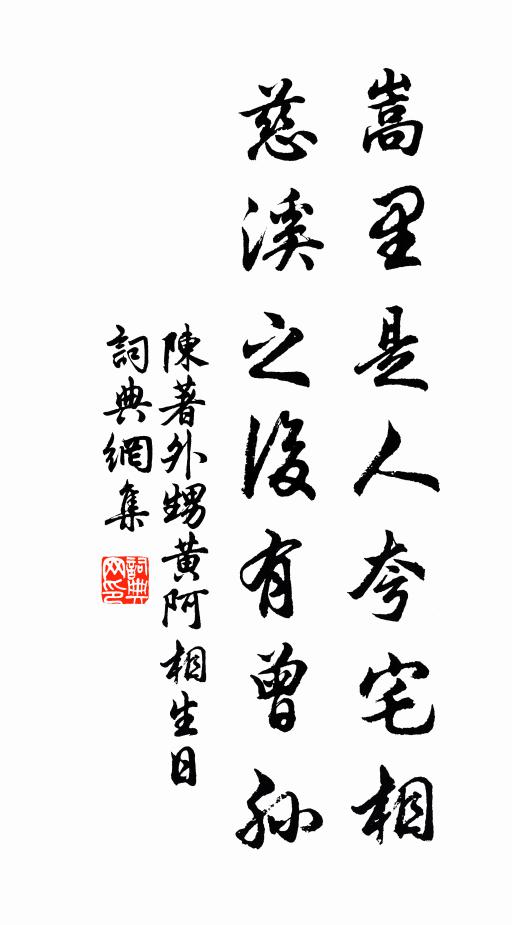 嵩里是人夸宅相
慈溪之後有曾孫
陳著外甥黄阿相生日
詞典網集
詞典網印